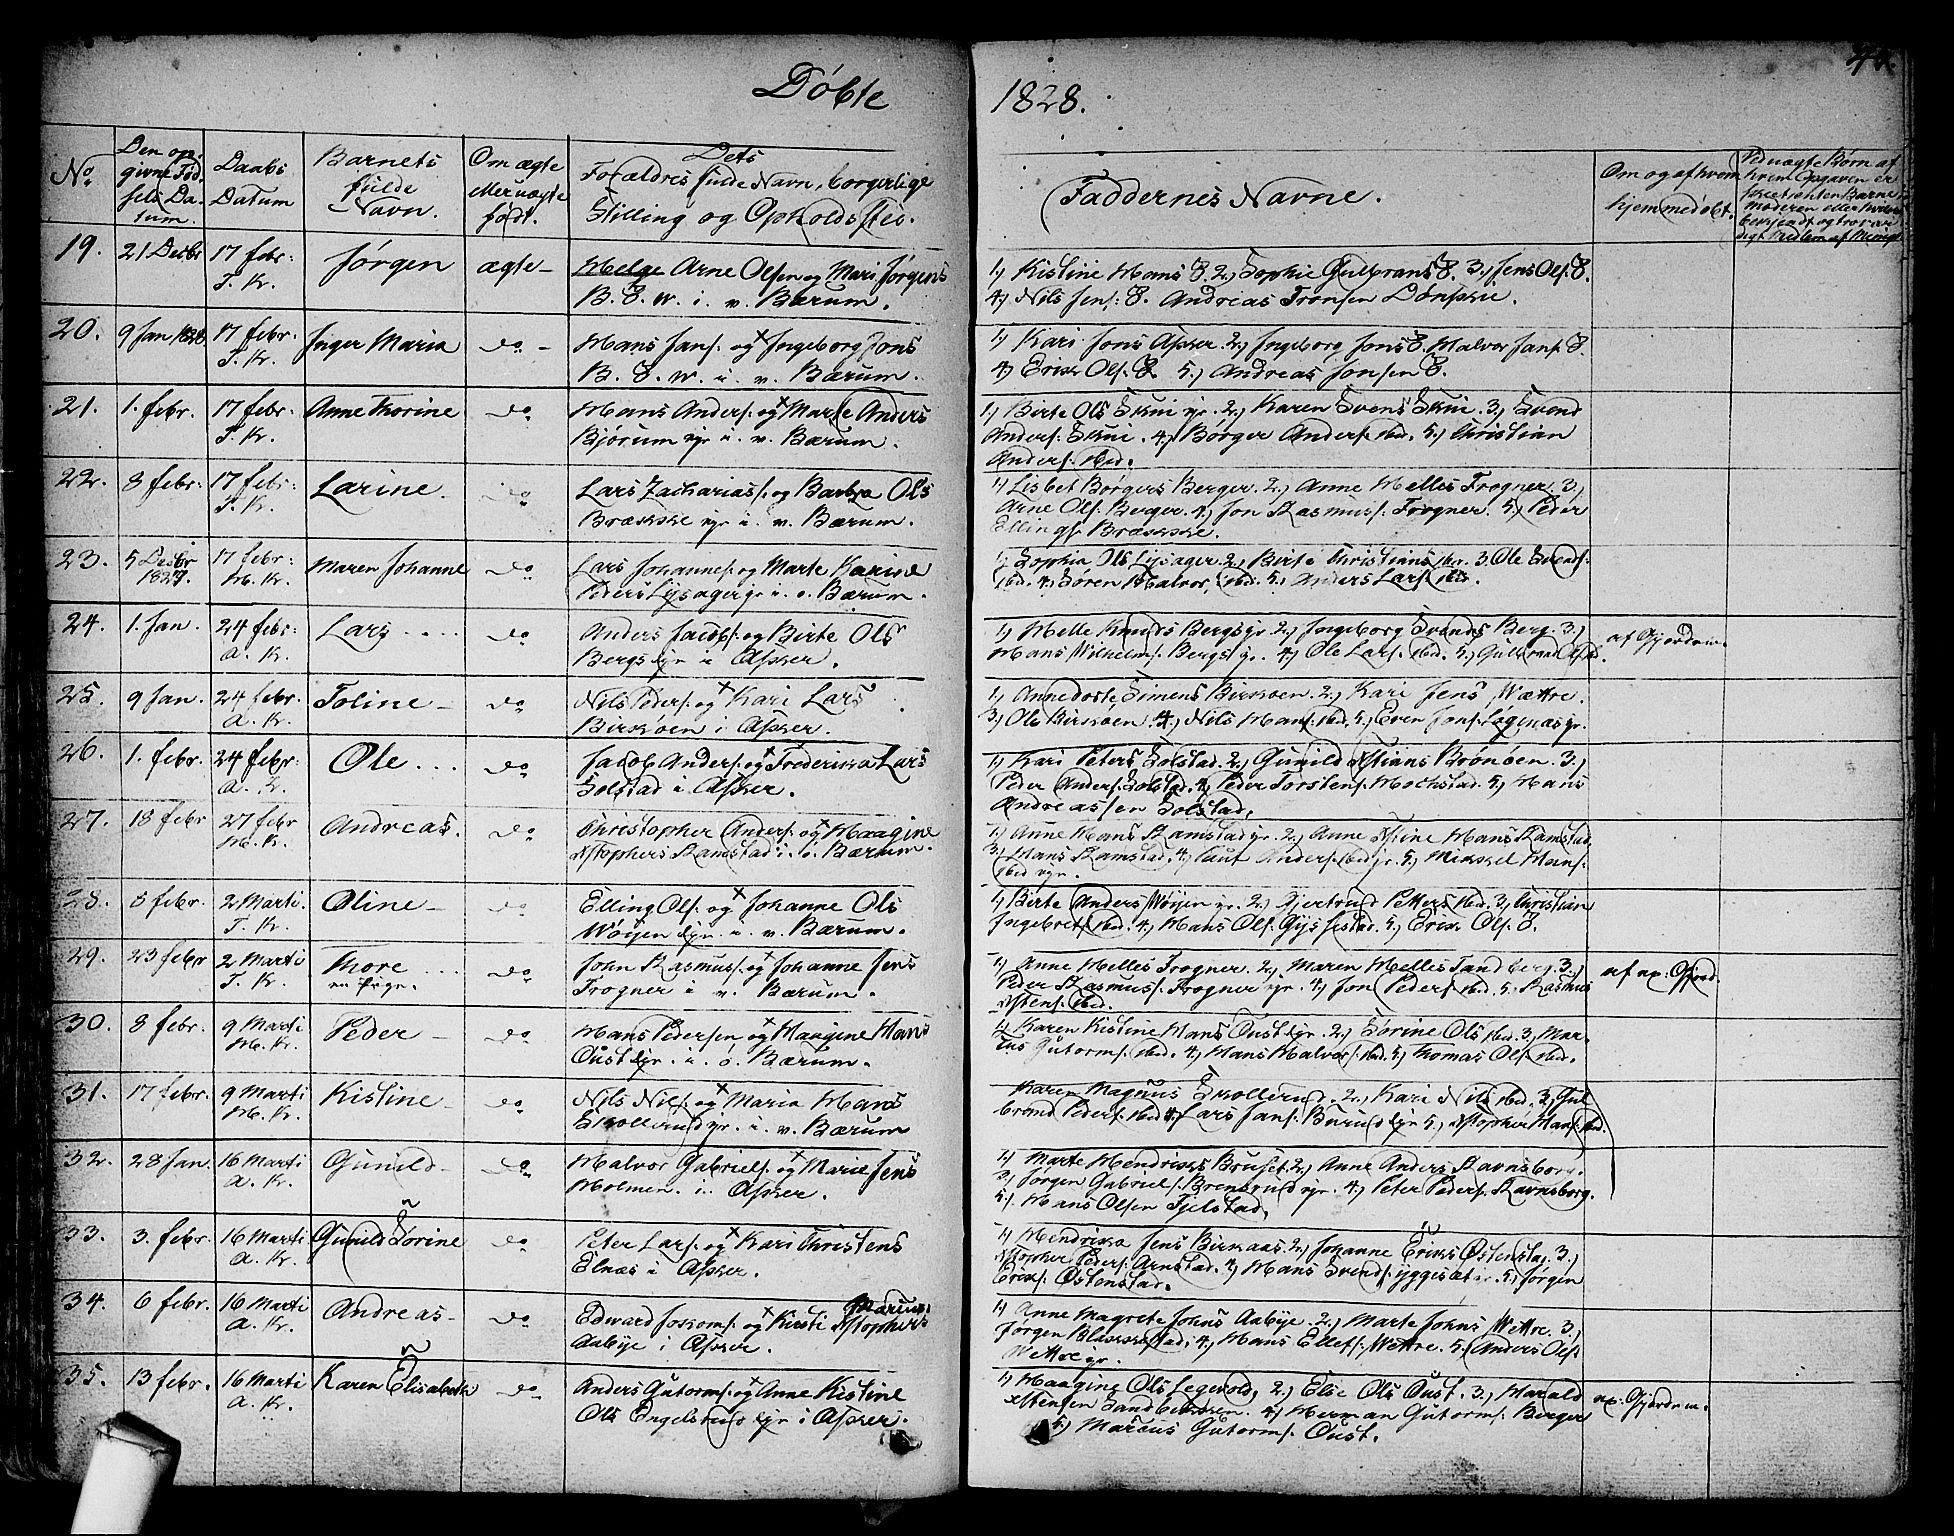 Døbte
1828.
No
Den op-
givne Fød-
sels Da-
tum.
Daabs
Datum
Barnets
fulde
Navn.
Om ægte
eller uægte
født.
Dets
Forældres fulde Navn, borgerlige
Stilling og Opholdssted.
Faddernes Navne.
Om og af hvem
hjemmedøbt.
Ved uægte Børn af
hvem Opgaven er
19. 21 Decbr 17 febr: Jørgen ægte- Helge Arne Olsen og Mari Jørgens
F. K. B. 8. w. i. v. Bærum.
1, Kistine Hans 8. 2, Sophie Gulbrans 8. 3, Jens Ols. 8.
4, Nils Jens: 8. Andreas Tronsen Dønskie.
20. 9 Jan 1828 17 febr: Inger Maria do - Hans Jans: og + Ingeborg Jons
F. K. B. 8. w. i. v. Bærum.
1, Kari Jons Asker. 2, Ingeborg Jons 8. Halvor Jans. 8.
4, Erik Ols. 8. 5, Andreas Jonsen 8.
21. 1. febr. 17 febr: Anne Thorine do Hans Anders: og + Marte Anders
F. K. Bjørum yr i. v. Bærum.
1, Birte Ols Skui yr. 2, Karen Svens Skui. 3, Svend
Anders: Skui. 4, Børger Anders: ibid. 5, Christian
Anders: ibid.
22. 8 febr. 17 febr: Larine. do Lars Zacharias: og Barbra Ols
F. K. Brække yr i. v. Bærum.
1, Lisbet Børgers Berger. 2, Anne Helles Frogner. 3,
Arne Ols. Berger. 4, Jon Rasmus: Frogner. 5, Peder
Ellings: Brække.
23. 5 Decbr 17 febr: Maren Johanne do Lars Johannes: og Marte Karine
1827. H. K. Peders Lysager yr i. ø. Bærum.
1, Sophia Ols Lysager. 2, Birte Christians ibid. 3. Ole Svends:
ibid. 4, Søren Halvor: ibid. 5, Anders Lars: ibid.
24. 1. Jan. 24 febr: Lars.... do Anders Jacobs: og Birte Ols
A. K. Bergs yr i Asker.
1, Helle Knuds Bergs yr. 2, Ingeborg Svends Berg. 3,
Hans Wilhelms: Bergs yr. 4, Ole Lars: ibid. 5, Gulbrand Ols ibid.
af Gjordem.
25. 9 Jan. 24 febr. Toline - do Nils Peders: og + Kari Lars
A. K. Birkøen i Asker.
1, Annedorte Simens Birkøen. 2, Kari Jens Wættre.
3, Ole Birkøen. 4, Nils Hans: ibid. 5, Even Jons: Løgenæs yr.
26. 1. febr. 24 febr. Ole ... do Jacob Anders: og + Frederikka Lars
A. K. Solstad i Asker.
1, Kari Peters Solstad. 2, Gunild Xstians Brønøen. 3,
Peder Anders: Solstad. 4, Peder Torstens: Hochstad. 5, Hans
Andreassen Solstad.
27. 18 febr 27 febr Andreas. do Christopher Anders: og + Haagine
H. K. Xstophers Ramstad i. ø. Bærum.
1, Anne Hans Ramstad yr. 2, Anne Xstine Hans Ramstad
3, Hans Ramstad. 4, Paul Anders: ibid yr. 5, Mikkel Hans:
ibid yr.
28. 5 febr. 2 Marti. Oline - do Elling Ols: og + Johanne Ols
F. K. Wøyen yr. i. v. Bærum.
1, Birte Anders Wøyen yr. 2, Gjertrud Petters ibid. 3, Christian
Ingebret: ibid. 4, Hans Ols: Gjssestad. 5, Erik Ols: 8.
29. 23 febr 2 Marti Thore ... do John Rasmus: og + Johanne Jens
F. K. en Pige. Frogner i v. Bærum.
1, Anne Helles Frogner. 2, Maren Helles Tandberg. 3,
Peder Rasmus: Frogner yr. 4, Jon Peders: ibid. 5. Rasmus
Xstens: ibid.
af ex: Gjord.
30. 8 febr. 9 Marti Peder - do Hans Pedersen og + Haagine Hans
H. K. Oust yr. i. ø. Bærum.
1, Karen Kistine Hans Oust yr. 2, Sorine Ols ibid. 3, Mar-
cus Gutorms: ibid. 4, Hans Halvor: ibid. 5, Thomas Ols: ibid.
31. 17 febr. 9 Marti Kistine - do Nils Nils: og + Maria Hans
H. K. Skollerud yr. i. v. Bærum
Karen Magnus Skollerud. 2, Kari Nils ibid. 3, Gul
brand Peders: ibid. 4. Lars Jans: Burud yr 5, Xstopher Hans: ibid.
32. 28 Jan. 16 Marti Gunild - do Halvor Gabriels: og + Marie Jens
A. K. Holmen. i. Asker.
1, Marte Hendriks Bruset. 2, Anne Anders Ravnsborg.
3, Jørgen Gabriels: Brensrud yr. 4, Peter Peders: Ravnsborg.
5, Hans Olsen Fjelstad.
33. 3. febr. 16 Marti Gunild Sørine do Peter Lars: og + Kari Christens
A. K. Elnæs i Asker.
1, Hendrikka Jens Birkaas. 2, Johanne Eriks Østensta. 3,
Xstopher Peders: Arnstad. 4, Hans Svends: yggesæt yr. 5, Jørgen
Eriks: Østenstad.
34. 6 febr. 16 Marti Andreas - do Edward Jockoms: og + Kirsti Xstophers
A. K. Aabye i Asker.
1, Anne Magrete Johns Aabye. 2, Marte Johns Wettre. 3,
Jørgen Blakkestad. 4, Hans Ellefs: Wettre. 5, Anders Ols:
Wettre yr.
35. 13 febr. 16 Marti Karen Elisabeth do Anders Gutorms: og + Anne Kistine
A. K. Ols Engelstrud yr i Asker.
1, Haagine Ols Legevold, 2, Elise Ols Oust. 3, Harald
Xstensen Sandbekken. 4, Herman Gutorms: Berger
5, Marcus Gutorms: Oust.
ex: Gjordem.